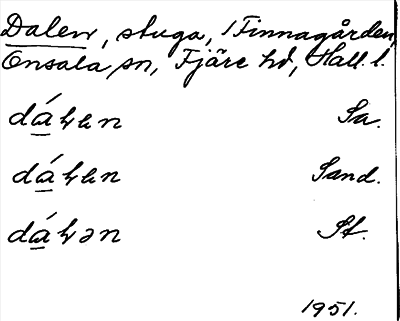 Dalen, stuga, 1 Finnagården,
Onsala sn, Fjäre hd, Hall. l.
dáln Sa.
dáln Sand.
dálən St.
1951.